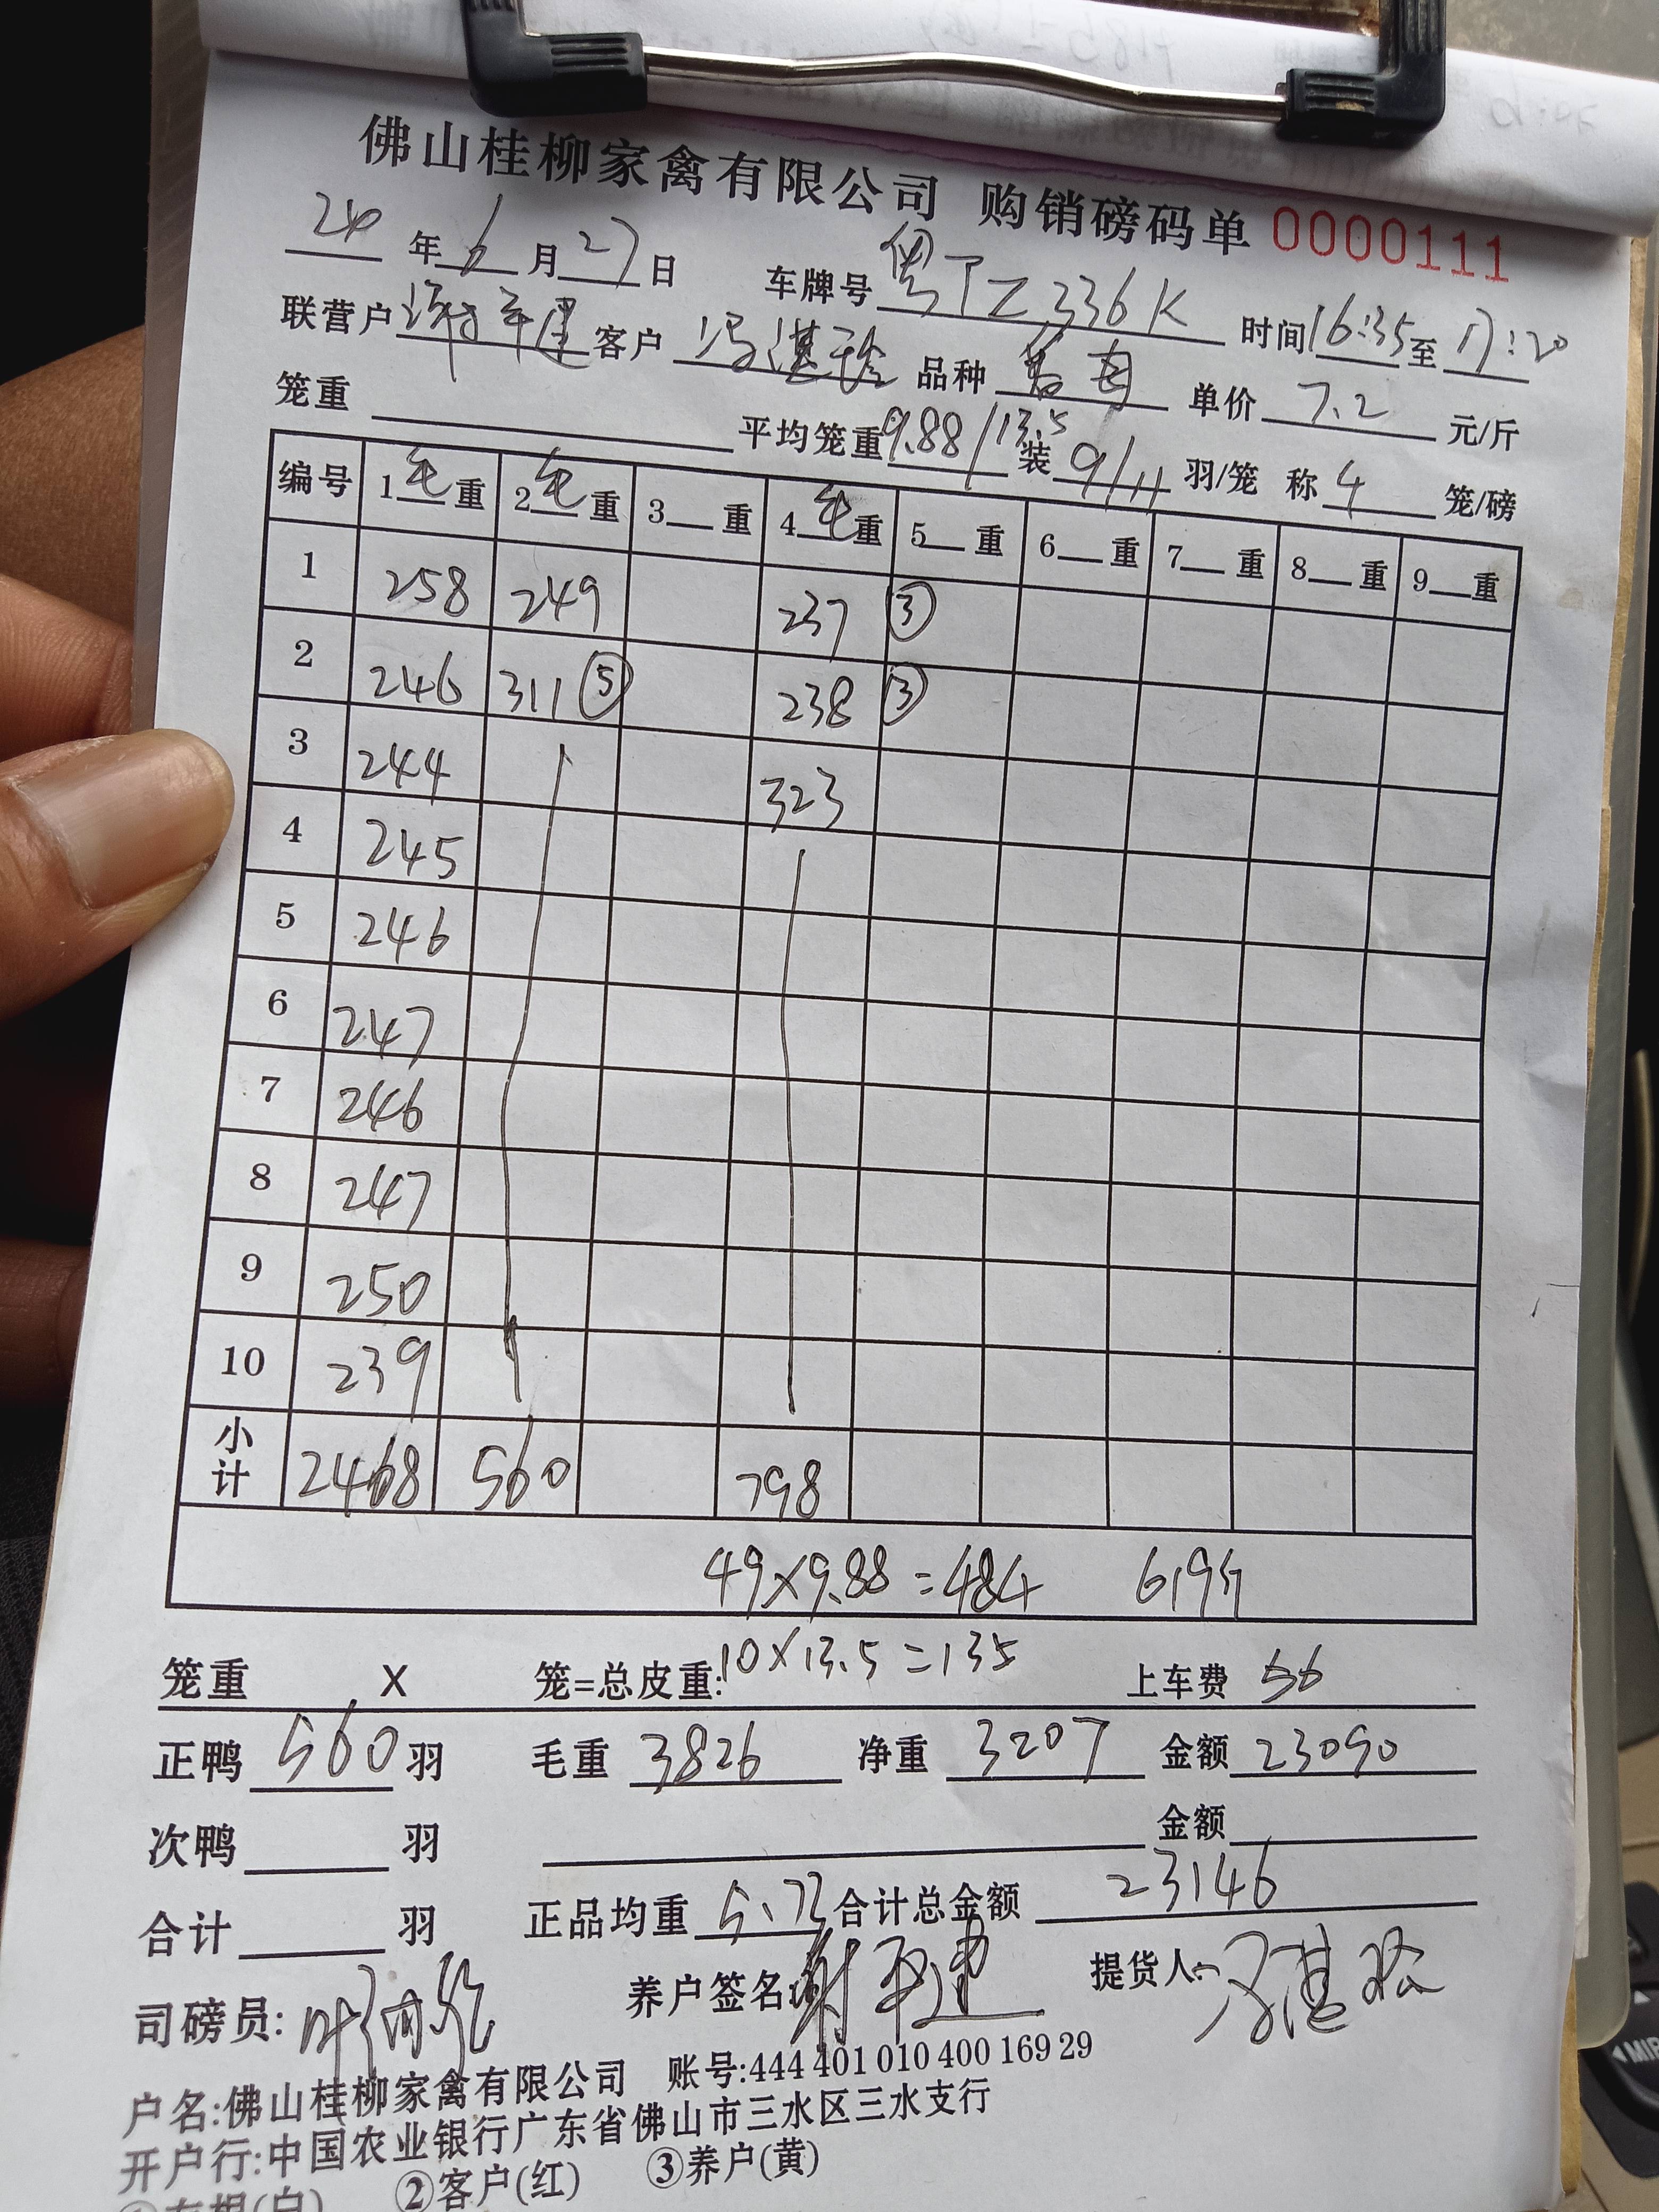 佛山桂柳家禽有限公司 购销磅码单 0000111
24年6月27日 车牌号 粤TZ336K 时间16:35至17:20
联营户 客户 冯湛 品种 单价 7.2 元/斤
笼重 平均笼重9.88/13.5装9/11羽/笼 称4笼/磅
编号 1毛重 2毛重 3重 4毛重 5重 6重 7重 8重 9重
1 258 249 237 ③
2 246 311 ⑤ 238 ③
3 244 323
4 245
5 246
6 247
7 246
8 247
9 250
10 239
小计 2468 560 798
49×9.88=484 619斤
笼重 X 笼=总皮重:10×13.5=135 上车费 56
正鸭 560 羽 毛重 3826 净重 3207 金额 23090
次鸭 羽 金额
合计 羽 正品均重 5.73 合计总金额 23146
司磅员: 养户签名: 提货人: 冯湛
户名:佛山桂柳家禽有限公司 账号:444 401 010 400 169 29
开户行:中国农业银行广东省佛山市三水区三水支行
①存根(白) ②客户(红) ③养户(黄)